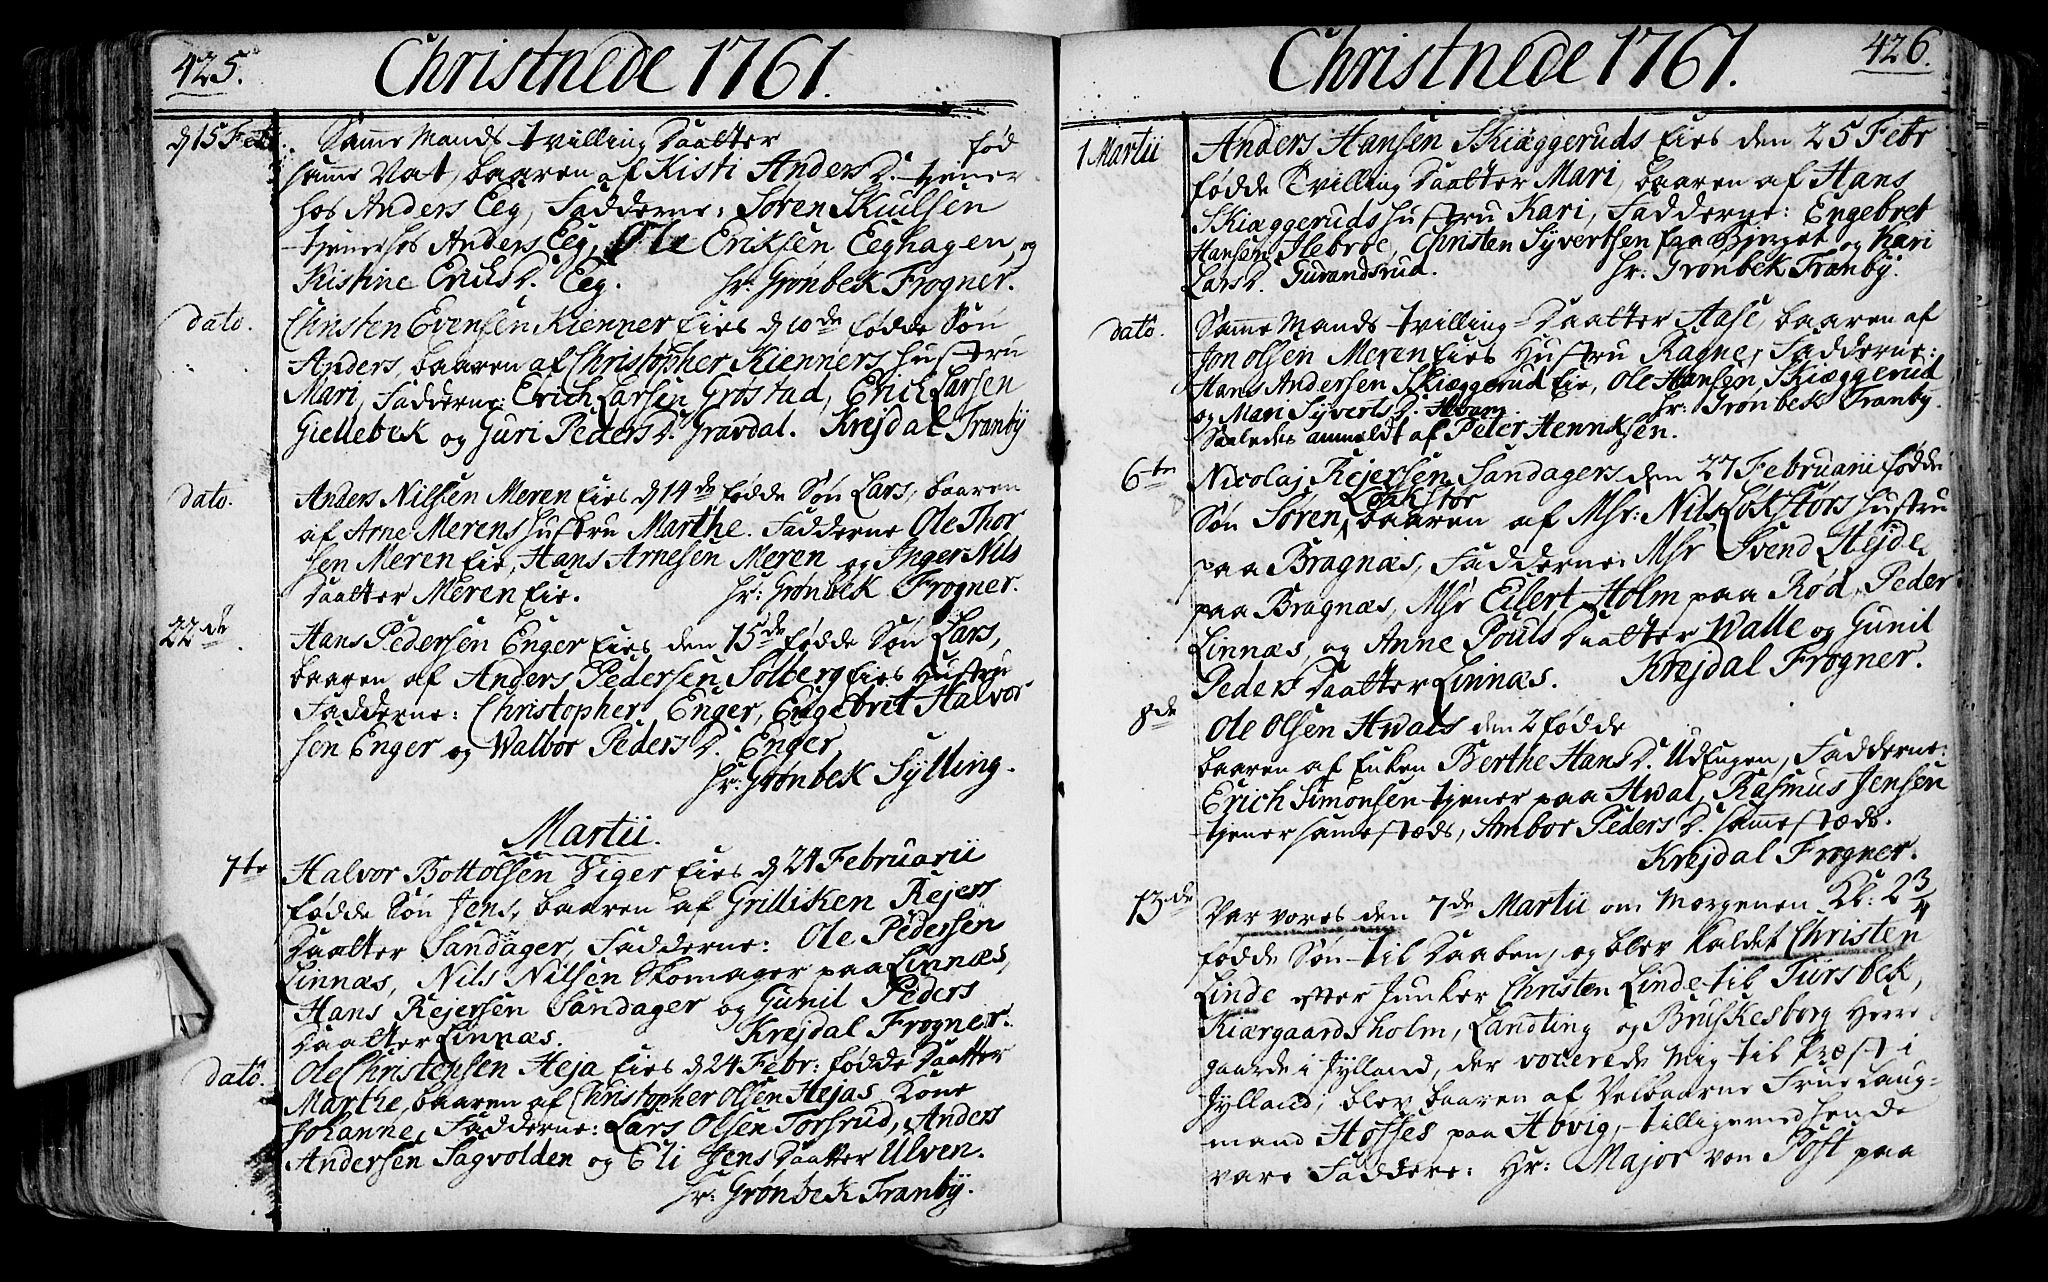 425.
Christnede 1761.
d 15 Febr. Samme Mands tvilling Daatter fød
samme Nat, baaren af Kisti Anders D. tjener
hos Anders Eeg, Fadderne: Søren Skiulsen
tjener hos Anders Eeg, Ole Eriksen Eeghagen, og
Kistine Erichs D. Eeg. Hr: Grønbek Frogner.
dato. Christen Evensen Kienner Eies d 10de fødde Søn
Anders, baaren af Christopher Kienners Hustru
Mari, Fadderne: Erich Larsen Grøstad, Erich Larsen
Giellebek og Guri Peders D. Gravdal. Krejdal Tranby
dato. Anders Nilsen Meren Eies d 14de fødde Søn Lars, baaren
af Arne Merens Hustru Marthe. Fadderne Ole Thor
sen Meren Eie, Hans Arnesen Meren og Inger Nils
Daatter Meren Eie. Hr: Grønbek Frogner.
22de Hans Pedersen Enger Eies den 15de fødde Søn Lars,
baaren af Anders Pedersen Solberg Eies Hustru
Fadderne: Christopher Enger, Engebret Halvor
sen Enger og Walbor Peders D. Enger,
Hr: Grønbek Sylling.
Martii.
7te Halvor Bottolsen Viger Eies d 24 Februarii
fødde Søn Jens, baaren af Grilliken Rejers
Daatter Sandager, Fadderne: Ole Pedersen
Linnæs, Nils Nilsen Skomager paa Linnæs,
Hans Rejersen Sandager og Gunil Peders
Daatter Linnæs. Krejdal Frogner.
dato. Ole Christensen Heja Eies d 24 Febr: fødde Daatter
Marthe, baaren af Christopher Olsen Hejas Kone
Johanne, Fadderne: Lars Olsen Torsrud, Anders
Andersen Sagvolden og Eli Jens Daatter Ulven.
Hr: Grønbek Tranby.
426.
Christnede 1761.
1 Martii Anders Hansen Skiæggeruds Eies den 25 Febr
fødde Tvilling Daatter Mari, baaren af Hans
Skiæggeruds Hustru Kari, Fadderne: Engebret
Hansen Ilebroe, Christen Syvertsen fra Bjerget og Kari
Lars D. Gurandsrud. Hr: Grønbek Tranby.
dato. Samme Mands tvilling-Daatter Aase, baaren af
Jon Olsen Meren Eies Hustru Ragne, Fadderne:
Hans Andersen Skiæggerud Eie, Ole Hansen Skiæggerud
og Mari Syverts D. Hvam. Hr: Grønbek Tranby.
Saaledes anmeldt af Peter Henriksen.
6te Nicolaj Rejersen Sandagers den 27 Februarii fødde
Lokstør
Søn Søren, baaren af Msr: Nils Lokstørs Hustru
paa Bragnæs, Fadderne: Msr Svend Hejde
paa Bragnæs, Msr Eilert Holm paa Rød, Peder
Linnæs, og Anne Pouls Daatter Walle og Gunil
Peders Daatter Linnæs. Krejdal Frogner.
8de Ole Olsen Hwals den 2 fødde
baaren af Enken Berthe Hans D. UdEngen, Fadderne:
Erich Simonsen tjener paa Hwal, Rasmus Jensen
tjener samestæds, Ambor Peders D. sammestæds.
Krejdal Frogner.
13de Var vores den 7de Martii om Morgenen Kl: 2 3/4
fødde Søn til Daaben, og blev kaldet Christen
Linde efter Junker Christen Linde til Tiirsbek,
Kiærgaardsholm, Landting og Bruskesborg Herre
gaarde i Jylland, der vocerede mig til Præst i
Jylland; blev baaren af Velbaarne Frue Laug-
mand Hoffes paa Høvig, tilligemed hende
vare Faddere: Hr: Major von Post paa